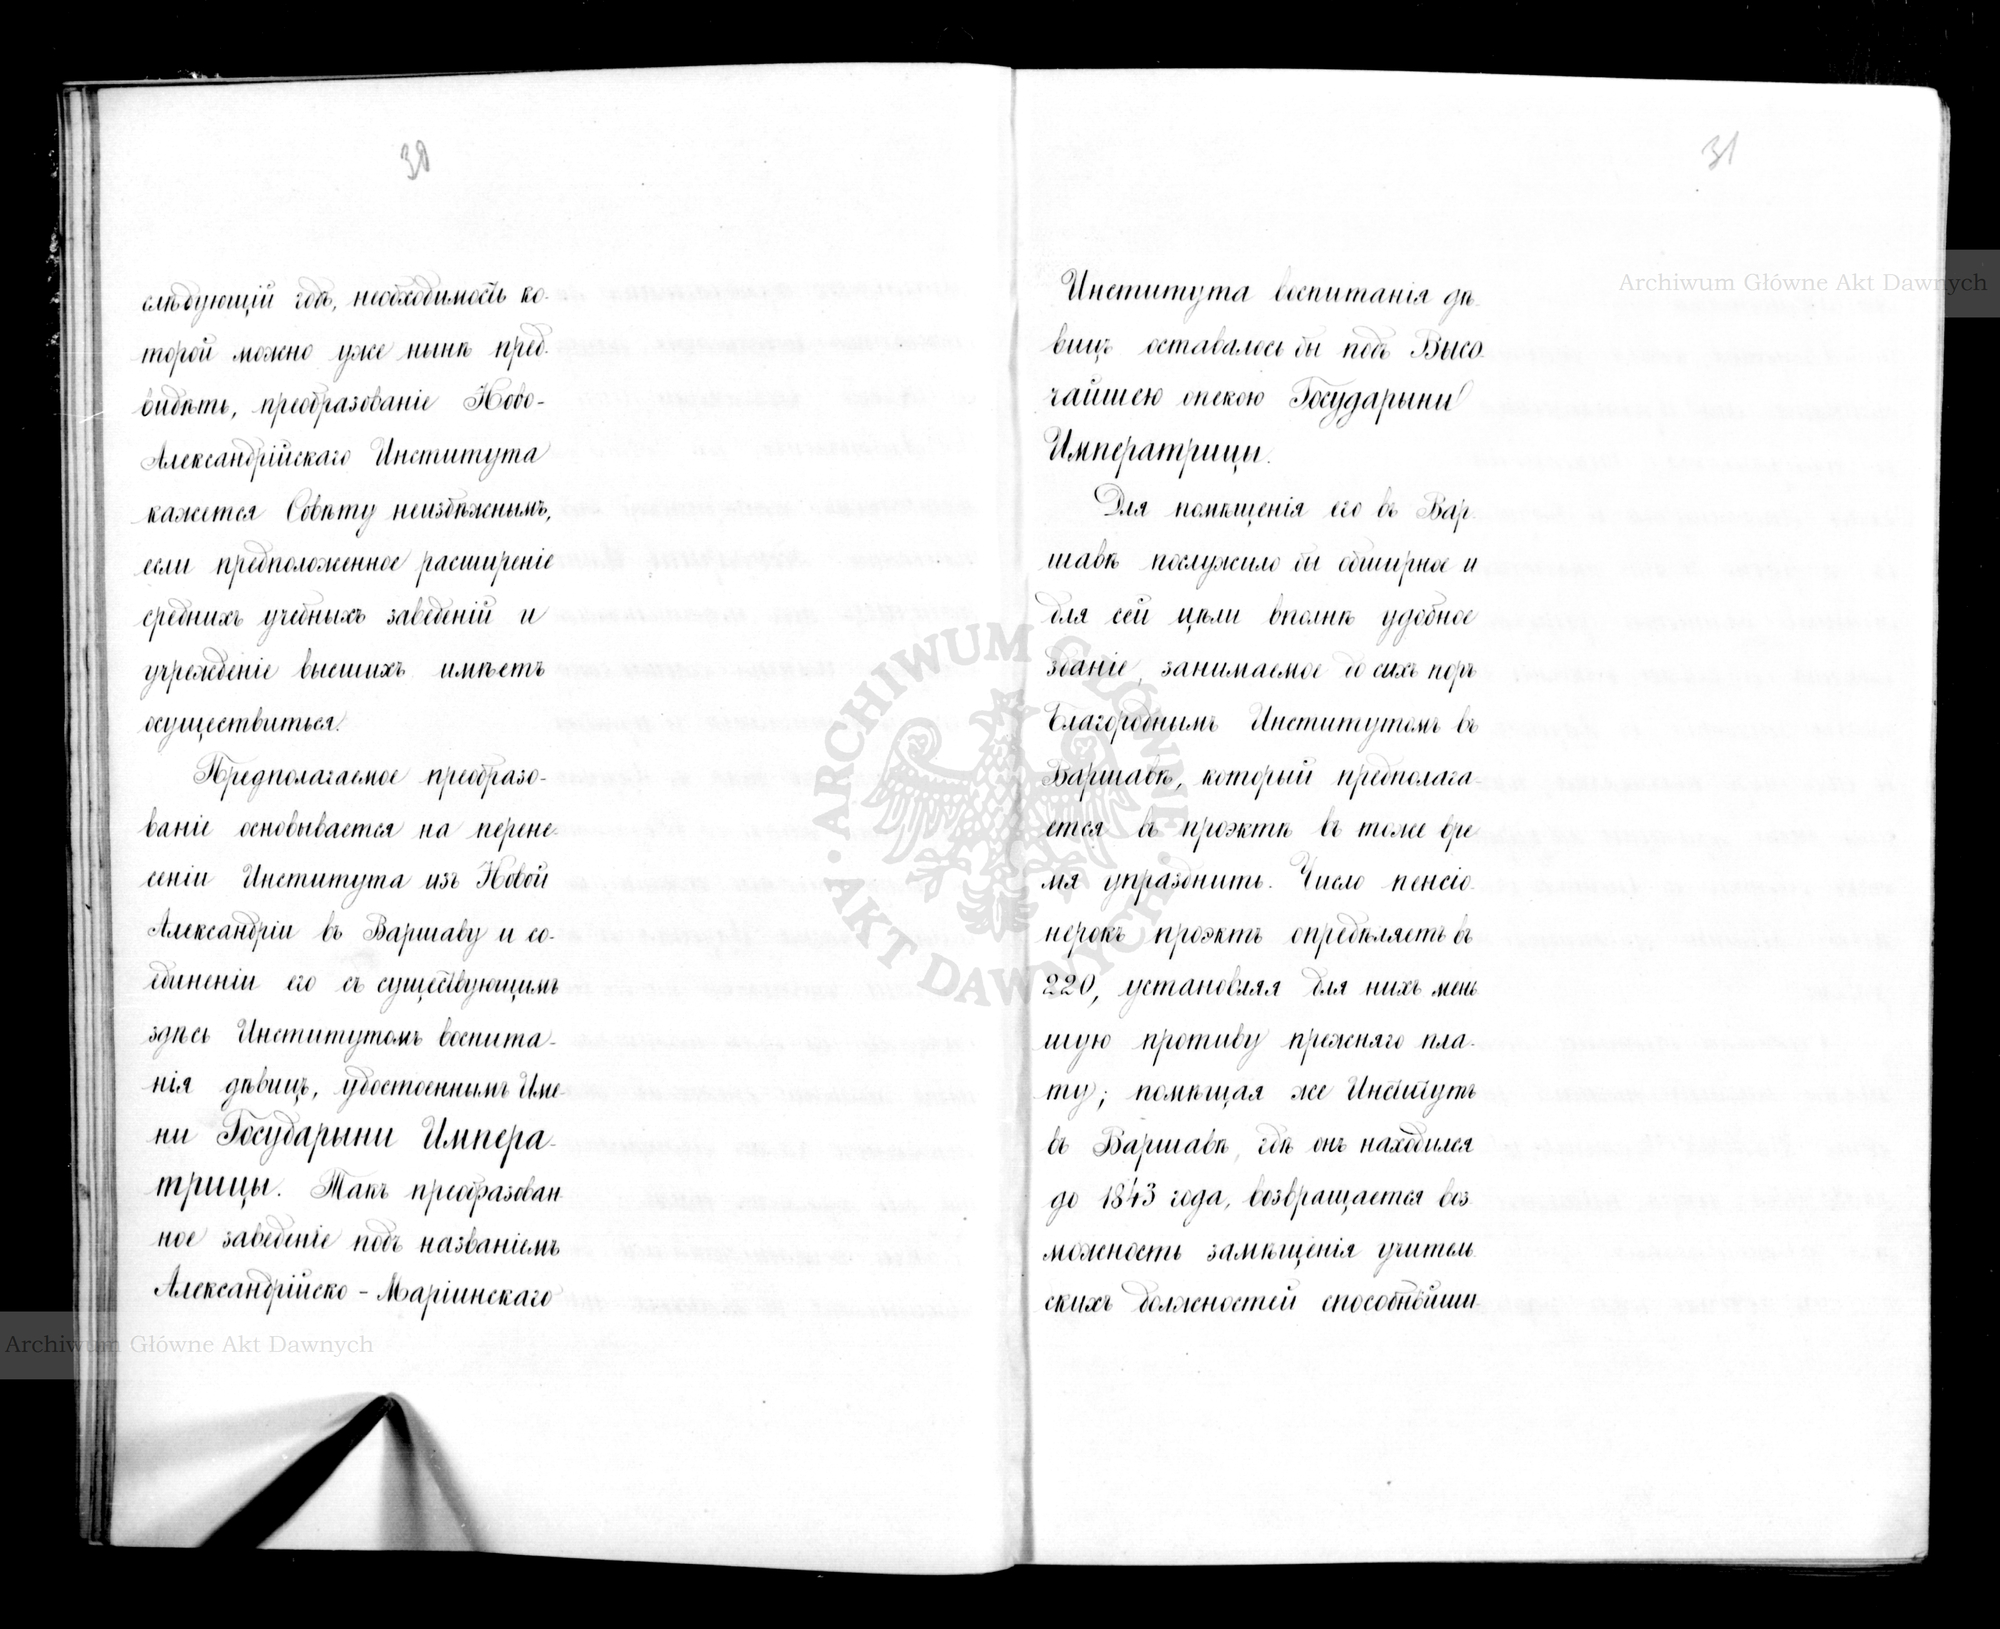 30
слѣдующій годъ, необходимость ко-
торой можно уже нынѣ пред-
видѣть, преобразованіе Ново-
Александрійскаго Института
кажется Совѣту неизбѣжнымъ,
если предположенное расширеніе
среднихъ учебныхъ заведеній и
учрежденіе высшихъ имѣетъ
осуществиться.
Предполагаемое преобразо-
ваніе основывается на перене-
сеніи Института изъ Новой
Александріи въ Варшаву и со-
единеніи его съ существующимъ
здѣсь Институтомъ воспита-
нія дѣвицъ, удостоеннымъ Име-
ни Государыни Импера-
трицы. Такъ преобразован-
ное заведеніе подъ названіемъ
Александрійско-Маріинскаго
31
Института воспитанія дѣ-
вицъ оставалось бы подъ Высо-
чайшею опекою Государыни
Императрицы.
Для помѣщенія его въ Вар-
шавѣ послужило бы обширное и
для сей цѣли вполнѣ удобное
зданіе, занимаемое до сихъ поръ
Благороднымъ Институтомъ въ
Варшавѣ, который предполага-
ется въ проэктѣ въ тоже вре-
мя упразднить. Число пенсіо-
нерокъ проэктъ опредѣляетъ въ
220, установляя для нихъ мень-
шую противу прежняго пла-
ту; помѣщая же Институтъ
въ Варшавѣ, гдѣ онъ находился
до 1843 года, возвращается воз-
можность замѣщенія учитель-
скихъ должностей способнѣйши-
Archiwum Główne Akt Dawnych
Archiwum Główne Akt Dawnych
ARCHIWUM GŁÓWNE
AKT DAWNYCH